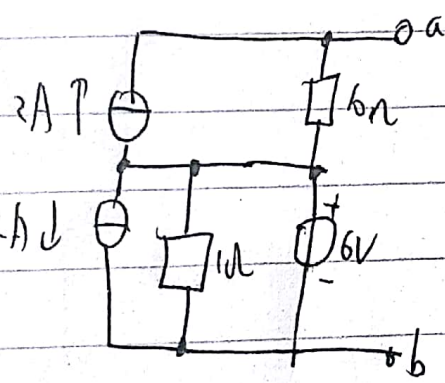 a
2A ↑
6Ω
A ↓
1Ω
+
6V
-
b